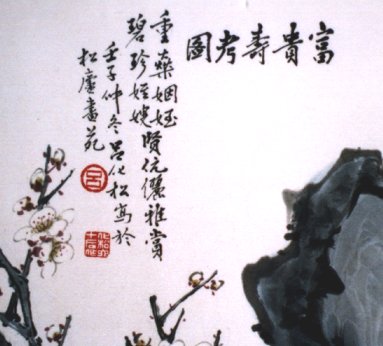 富貴壽考圖
重華姻姪
碧珍姪媳賢伉儷雅賞
壬子仲冬呂化松寫於
松廬畫苑
呂